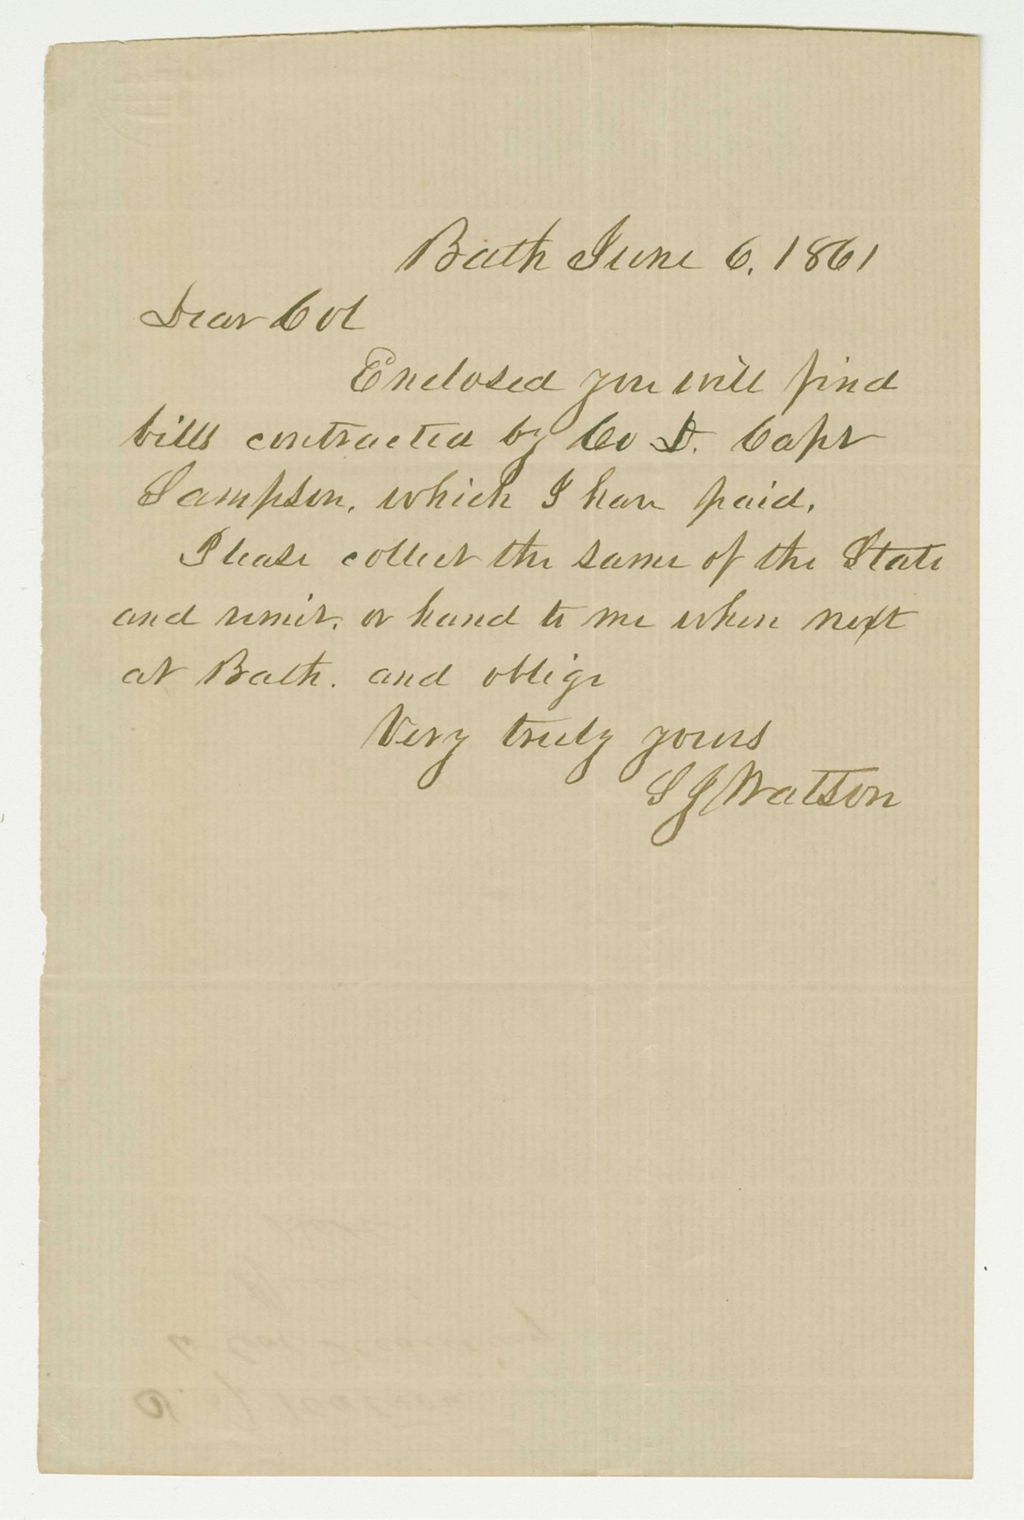 Bath June 6, 1861
Dear Col
Enclosed you will find
bills contracted by Co D. Capt
Sampson, which I have paid.
Please collect the same of the State
and remit, or hand to me when next
at Bath. and oblige
Very truly yours
S J Watson